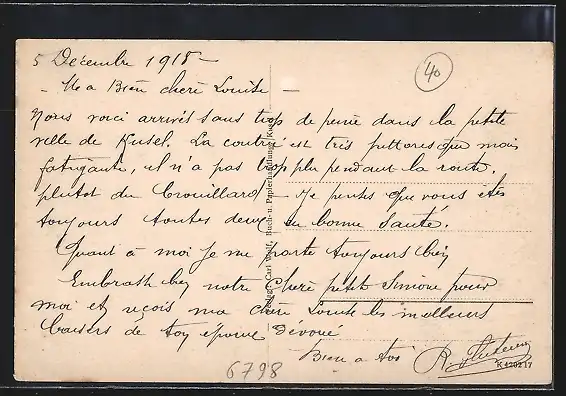 5 Décembre 1918 —
40
- Ma Bien cheré Louise —
Nous voici arrivés sans trop de peine dans la petite
ville de Kusel. La contré est très pittoresque mais
fatigante, il n'a pas trop plu pendant la route.
plutot du brouillard — Je penses que vous êtes
toujours toutes deux en bonne Santé.
Quant à moi Je me porte toujours bien
Embrasse bien notre cheré petit Simone pour
moi et reçois ma cheré Louise les meilleurs
baisers de ton epoux dévoué
Bien a toi
6798
K 420217
Verlag: Carl Wolf, Buch- u. Papierhandlung, Kusel